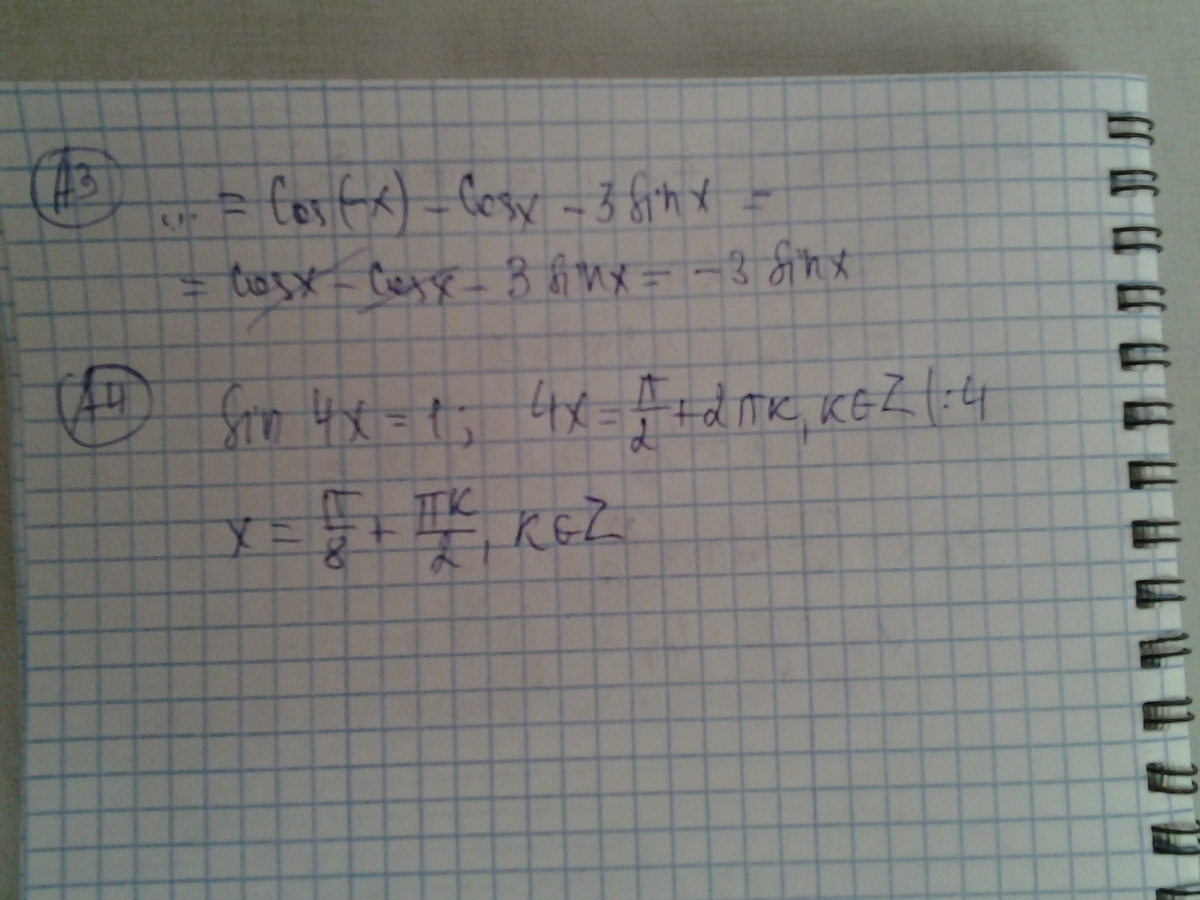 А3 ... = Cos(-x) - Cosx - 3 sin x =
= cosx - cosx - 3 sinx = -3 sinx
А4 sin 4x = 1; 4x = π/2 + 2πк, к∈Z |:4
x = π/8 + πк/2, к∈Z